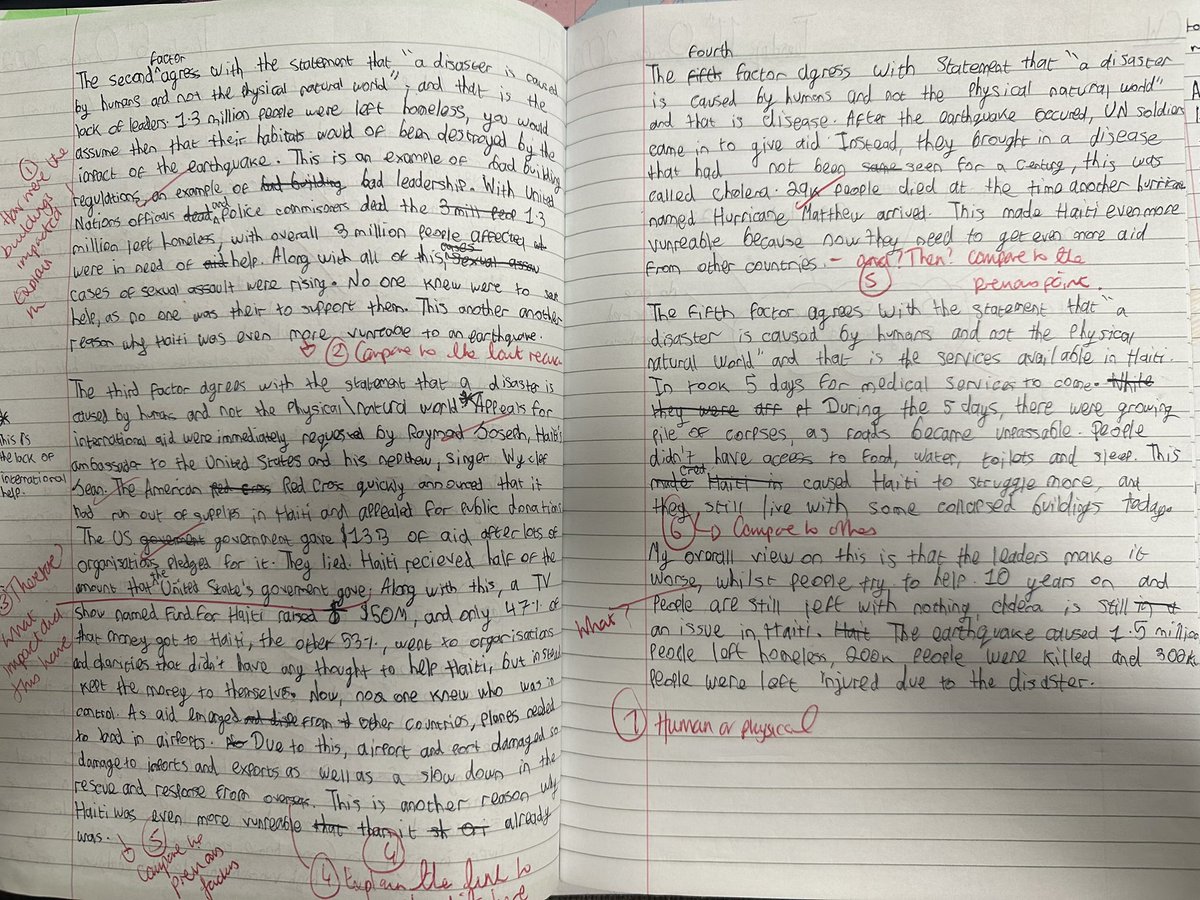 factor
The second ^ agress with the statement that "a disaster is caused
by humans and not the physical natural world"; and that is the
lack of leaders. 1.3 million people were left homeless, you would
assume then that their habitats would of been destroyed by the
impact of the earthquake. This is an example of bad building
regulations, an example of bad building bad leadership. With United
Nations officials dead and Police commisoners ded the 3 mill peop 1.3
million left homeless, with overall 3 million people affected
were in need of aid help. Along with all of this, cases sexual assau
cases of sexual assault were rising. No one knew were to
help, as no one was their to support them. This another another
reason why Haiti was even more vunreable to an earthquake.
② Compare to the last
① How were the
buildings
impacted
Explain
The third factor agrees with the statement that a disaster is
caused by humans and not the Physical natural world * Appeals for
international aid were immediately requested by Raymond Joseph, Haiti's
ambassador to the United States and his nephew, singer Wyclef
Jean. The American Red Cross Red Cross quickly announced that it
had run out of supplies in Haiti and appealed for public donations
The US goverment government gave $13B of aid after lots of
organisations pledged for it. They lied. Haiti recieved half of the
amount that the United State's goverment gave. Along with this, a TV
show named Fund for Haiti raised $ $50M, and only 47% of
that money got to Haiti, the other 53%, went to organisations
and charities that didn't have any thought to help Haiti, but instead
kept the money to themselves. Now, no one knew who was in
control. As aid emarged from other countries, planes needed
to land in airports. Due to this, airport and port damaged so
damage to imports and exports as well as a slow down in the
rescue and response from overseas. This is another reason why
Haiti was even more vunreable that than it already
was.
*
This is
the lack of
international
help.
③ Therefore
What
impact did
this have
⑤
Compare to
previous
factors
④
④ Explain the link to
fourth
The fifth factor agress with Statement that "a disaster
is caused by humans and not the Physical natural world"
and that is disease. After the earthquake occured, UN soldiers
came in to give aid. Instead, they brought in a disease
that had not been same seen for a Century, this was
called cholera. 29k people died at the time another hurricane
named Hurricane Matthew arrived. This made Haiti even more
vunreable because now they need to get even more aid
from other countries. - and? Then? Compare to the
⑤ previous point.
The fifth factor agrees with the statement that "a
disaster is caused by humans and not the Physical
natural world" and that is the services available in Haiti.
In took 5 days for medical services to come. While
they were During the 5 days, there were growing
pile of corpses, as roads became unpassable. People
didn't have access to food, water, toilets and sleep. This
made Haiti in caused Haiti to struggle more, and
they still live with some collapsed buildings today.
⑥ → Compare to others
My overall view on this is that the leaders make it
worse, whilst people try to help. 10 years on and
people are still left with nothing, cholera is still
What?
an issue in Haiti. Hait The earthquake caused 1.5 million
People left homeless, 200k people were killed and 300k
People were left injured due to the disaster.
⑦ Human or physical